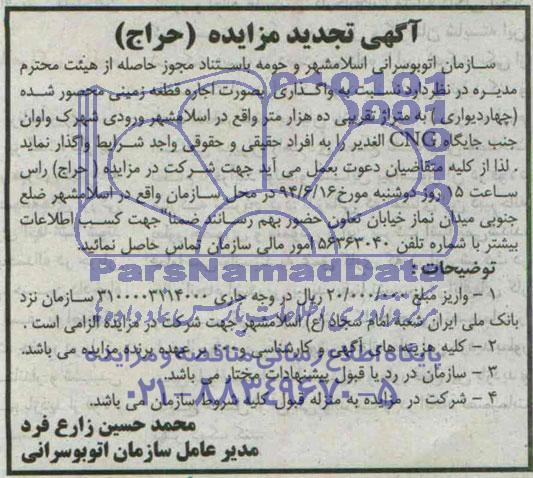 آگهی تجدید مزایده (حراج)
سازمان اتوبوسرانی اسلامشهر و حومه باستناد مجوز حاصله از هیئت محترم
مدیره در نظر دارد نسبت به واگذاری (بصورت اجاره قطعه زمینی محصور شده
(چهاردیواری) به متراژ تقریبی ده هزار متر واقع در اسلامشهر ورودی شهرک واوان
جنب جایگاه CNG الغدیر را به افراد حقیقی و حقوقی واجد شرایط واگذار نماید
. لذا از کلیه متقاضیان دعوت بعمل می آید جهت شرکت در مزایده (حراج) راس
ساعت ۱۵ روز دوشنبه مورخ ۹۴/۶/۱۶ در محل سازمان واقع در اسلامشهر ضلع
جنوبی میدان نماز خیابان تعاون حضور بهم رسانند ضمنا جهت کسب اطلاعات
بیشتر با شماره تلفن ۵۶۳۶۳۰۴۰ امور مالی سازمان تماس حاصل نمائید
ParsNamadData
توضیحات :
۱ - واریز مبلغ ۲۰/۰۰۰/۰۰۰ ریال در وجه جاری ۳۱۰۰۰۰۳۲۱۴۰۰۰ سازمان نزد
بانک ملی ایران شعبه امام سجاد (ع) اسلامشهر جهت شرکت در مزایده الزامی است .
۲ - کلیه هزینه های آگهی و کارشناسی و... بر عهده برنده مزایده می باشد.
پایگاه اطلاع رسانی مناقصه و مزایده
۳ - سازمان در رد یا قبول پیشنهادات مختار می باشد.
۰۲۱-۸۸۳۴۹۶۷۰-۵
۴ - شرکت در مزایده به منزله قبول کلیه شروط سازمان می باشد.
محمد حسین زارع فرد
مدیر عامل سازمان اتوبوسرانی